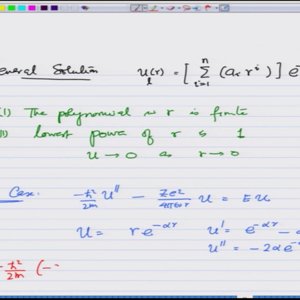 eneral Solution u_l(r) = [ Σ_{i=1}^{n} (a_i r^i) ] e
(I) The polynomial in r is finite
II) lowest power of r is 1
u → 0 as r → 0
Case: -ħ²/2m u'' - Ze²/4πε₀r u = E u
u = r e^{-αr} u' = e^{-αr} -
u'' = -2αe^-
-ħ²/2m (-